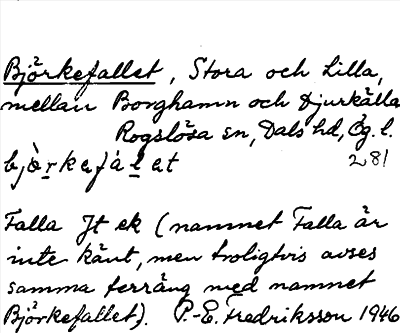 Björkefallet, Stora och Lilla,
mellan Borghamn och Djurkälla
Rogslösa sn, Dals hd, Ög. l.
bjö̀rkefál et 281
Falla Jt ek (namnet Falla är
inte känt, men troligtvis avses
samma terräng med namnet
Björkefallet). P.-E. Fredriksson 1946